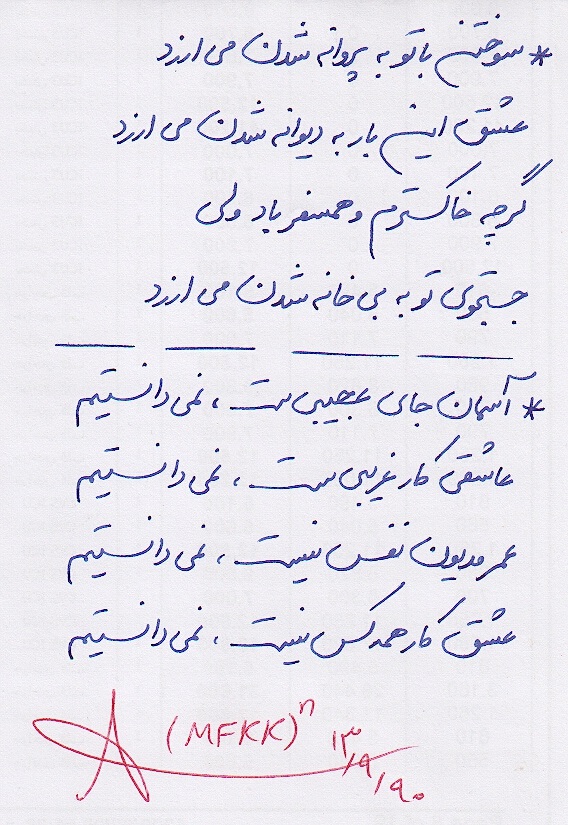 * سوختن با تو به پروانه شدن می ارزد
عشق این بار به دیوانه شدن می ارزد
گرچه خاکسترم و همسفر باد ولی
جستجوی تو به بی خانه شدن می ارزد
* آسمان جای عجیبی ست ، نمی دانستیم
عاشقی کار غریبی ست ، نمی دانستیم
عمر مدیون نفس نیست ، نمی دانستیم
عشق کار همه کس نیست ، نمی دانستیم
(MFKK)ⁿ ۱۳/۹/۹۰